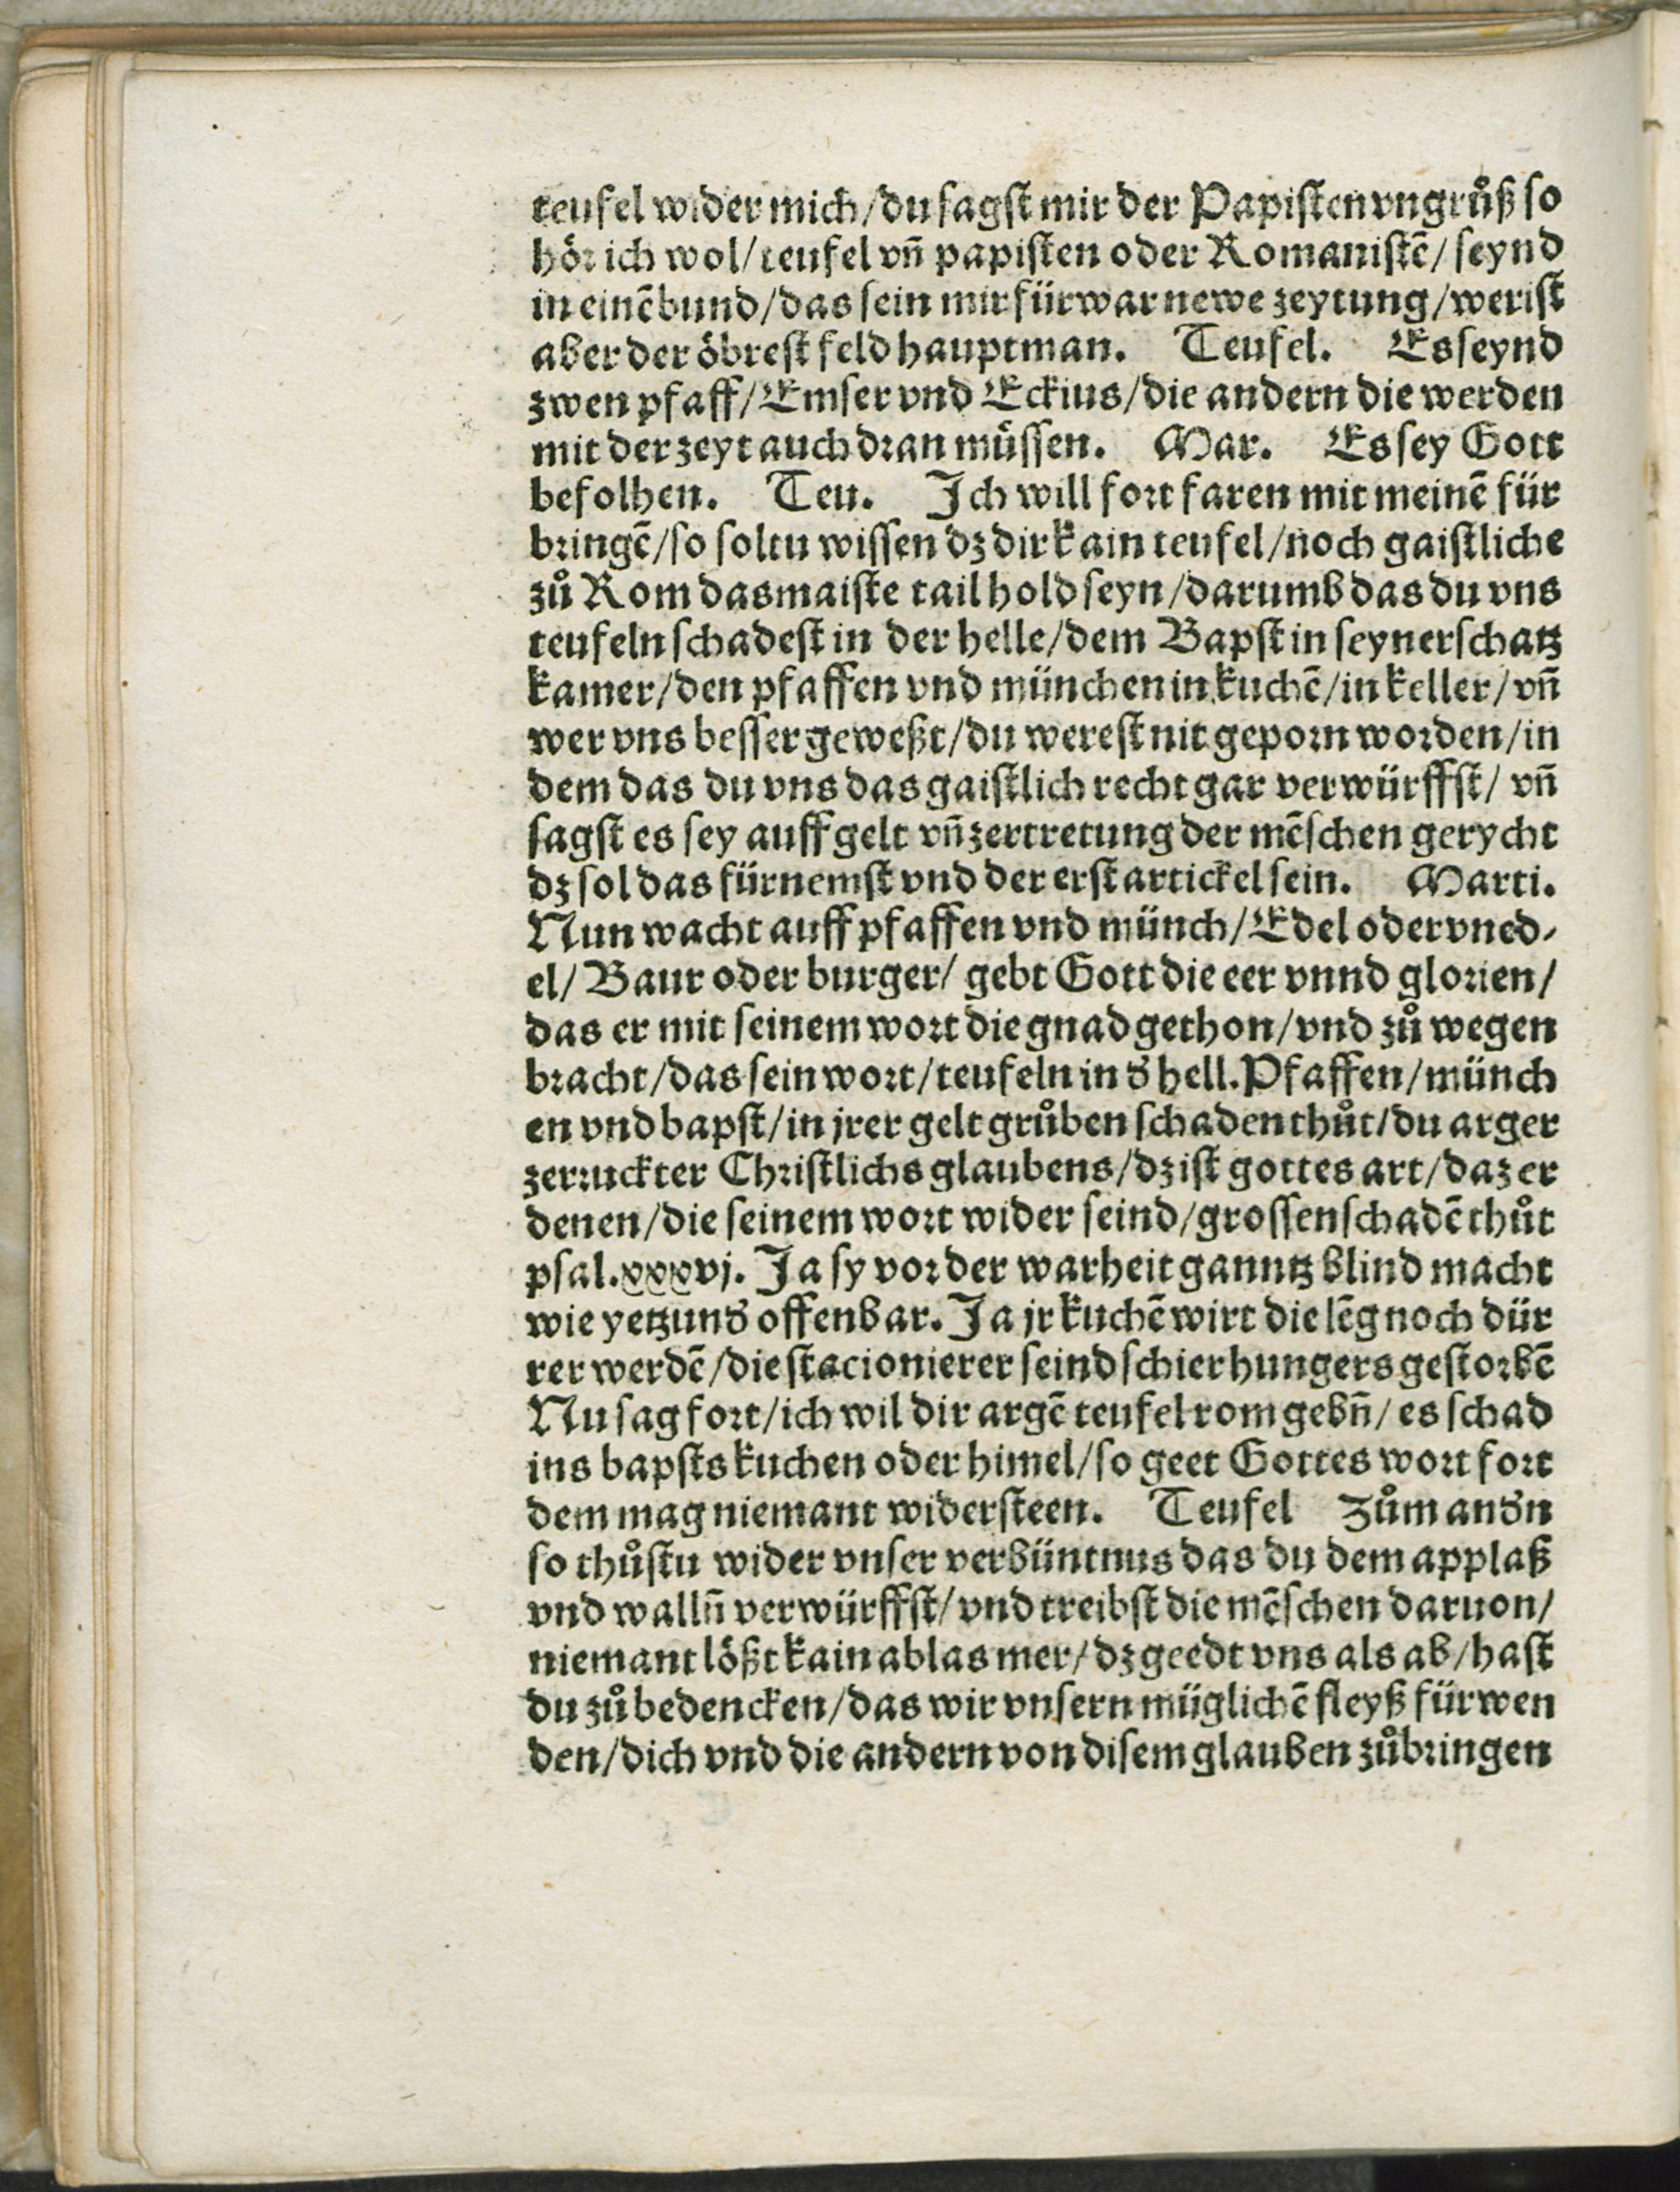 teufel wider mich/du sagſt mir der Papiſten vngrůß so
hör ich wol/teufel vn̄ papiſten oder Romaniſtē/ſeynd
in einē bund/das ſein mir fürwar newe zeytung/wer iſt
aber der öbreſt feld hauptman. Teufel. Es ſeynd
zwen pfaff/Emſer vnd Eckius/die andern die werden
mit der zeyt auch dran müſſen. Mar. Es ſey Gott
befolhen. Teu. Ich will fort faren mit meinē für
bringē/ſo ſoltu wiſſen dz dir kain teufel/noch gaiſtliche
zů Rom das maiſte tail hold ſeyn/darumb das du vns
teufeln ſchadeſt in der helle/dem Bapſt in ſeyner ſchatz
kamer/den pfaffen vnd münchen in kuchē/in keller/vn̄
wer vns beſſer geweßt/du wereſt nit geporn worden/in
dem das du vns das gaiſtlich recht gar verwürffſt/ vn̄
ſagſt es ſey auff gelt vn̄ zertretung der mēſchen gerycht
dz ſol das fürnemſt vnd der erſt artickel ſein. Marti.
Nun wacht auff pfaffen vnd münch/Edel oder vned-
el/Baur oder burger/ gebt Gott die eer vnnd glorien/
das er mit ſeinem wort die gnad gethon/vnd zů wegen
bracht/das ſein wort/teufeln in d̕ hell. Pfaffen/münch
en vnd bapſt/in jrer gelt grůben ſchaden thůt/du arger
zerruckter Chriſtlichs glaubens/dz iſt gottes art/daz er
denen/die ſeinem wort wider ſeind/groſſen ſchadē thůt
pſal.xxxvj. Ja ſy vor der warheit ganntz blind macht
wie yetzund̕ offenbar. Ja jr kuchē wirt die lēg noch dür
rer werdē/die ſtacionierer ſeind ſchier hungers geſtorbē
Nu ſag fort/ich wil dir argē teufel rom gebn̄/es ſchad
ins bapſts kuchen oder himel/ſo geet Gottes wort fort
dem mag niemant widerſteen. Teufel Zům and̕n
ſo thůſtu wider vnſer verbüntnus das du dem applaß
vnd walln̄ verwürffſt/vnd treibſt die mēſchen daruon/
niemant lößt kain ablas mer/dz geedt vns als ab/haſt
du zů bedencken/das wir vnſern müglichē fleyß fürwen
den/dich vnd die andern von diſem glauben zůbringen